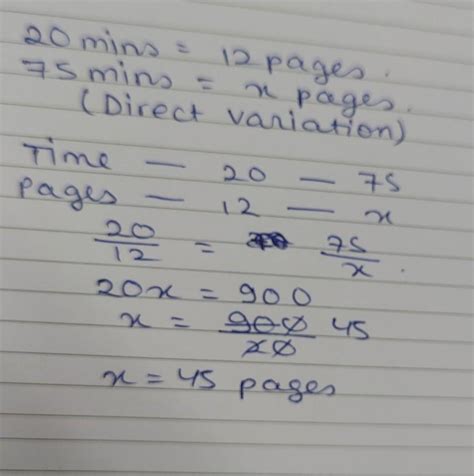 20 mins = 12 pages.
75 mins = x pages.
(Direct variation)
Time — 20 — 75
pages — 12 — x
20/12 = 75/x.
20x = 900
x = 900/20 45
x = 45 pages